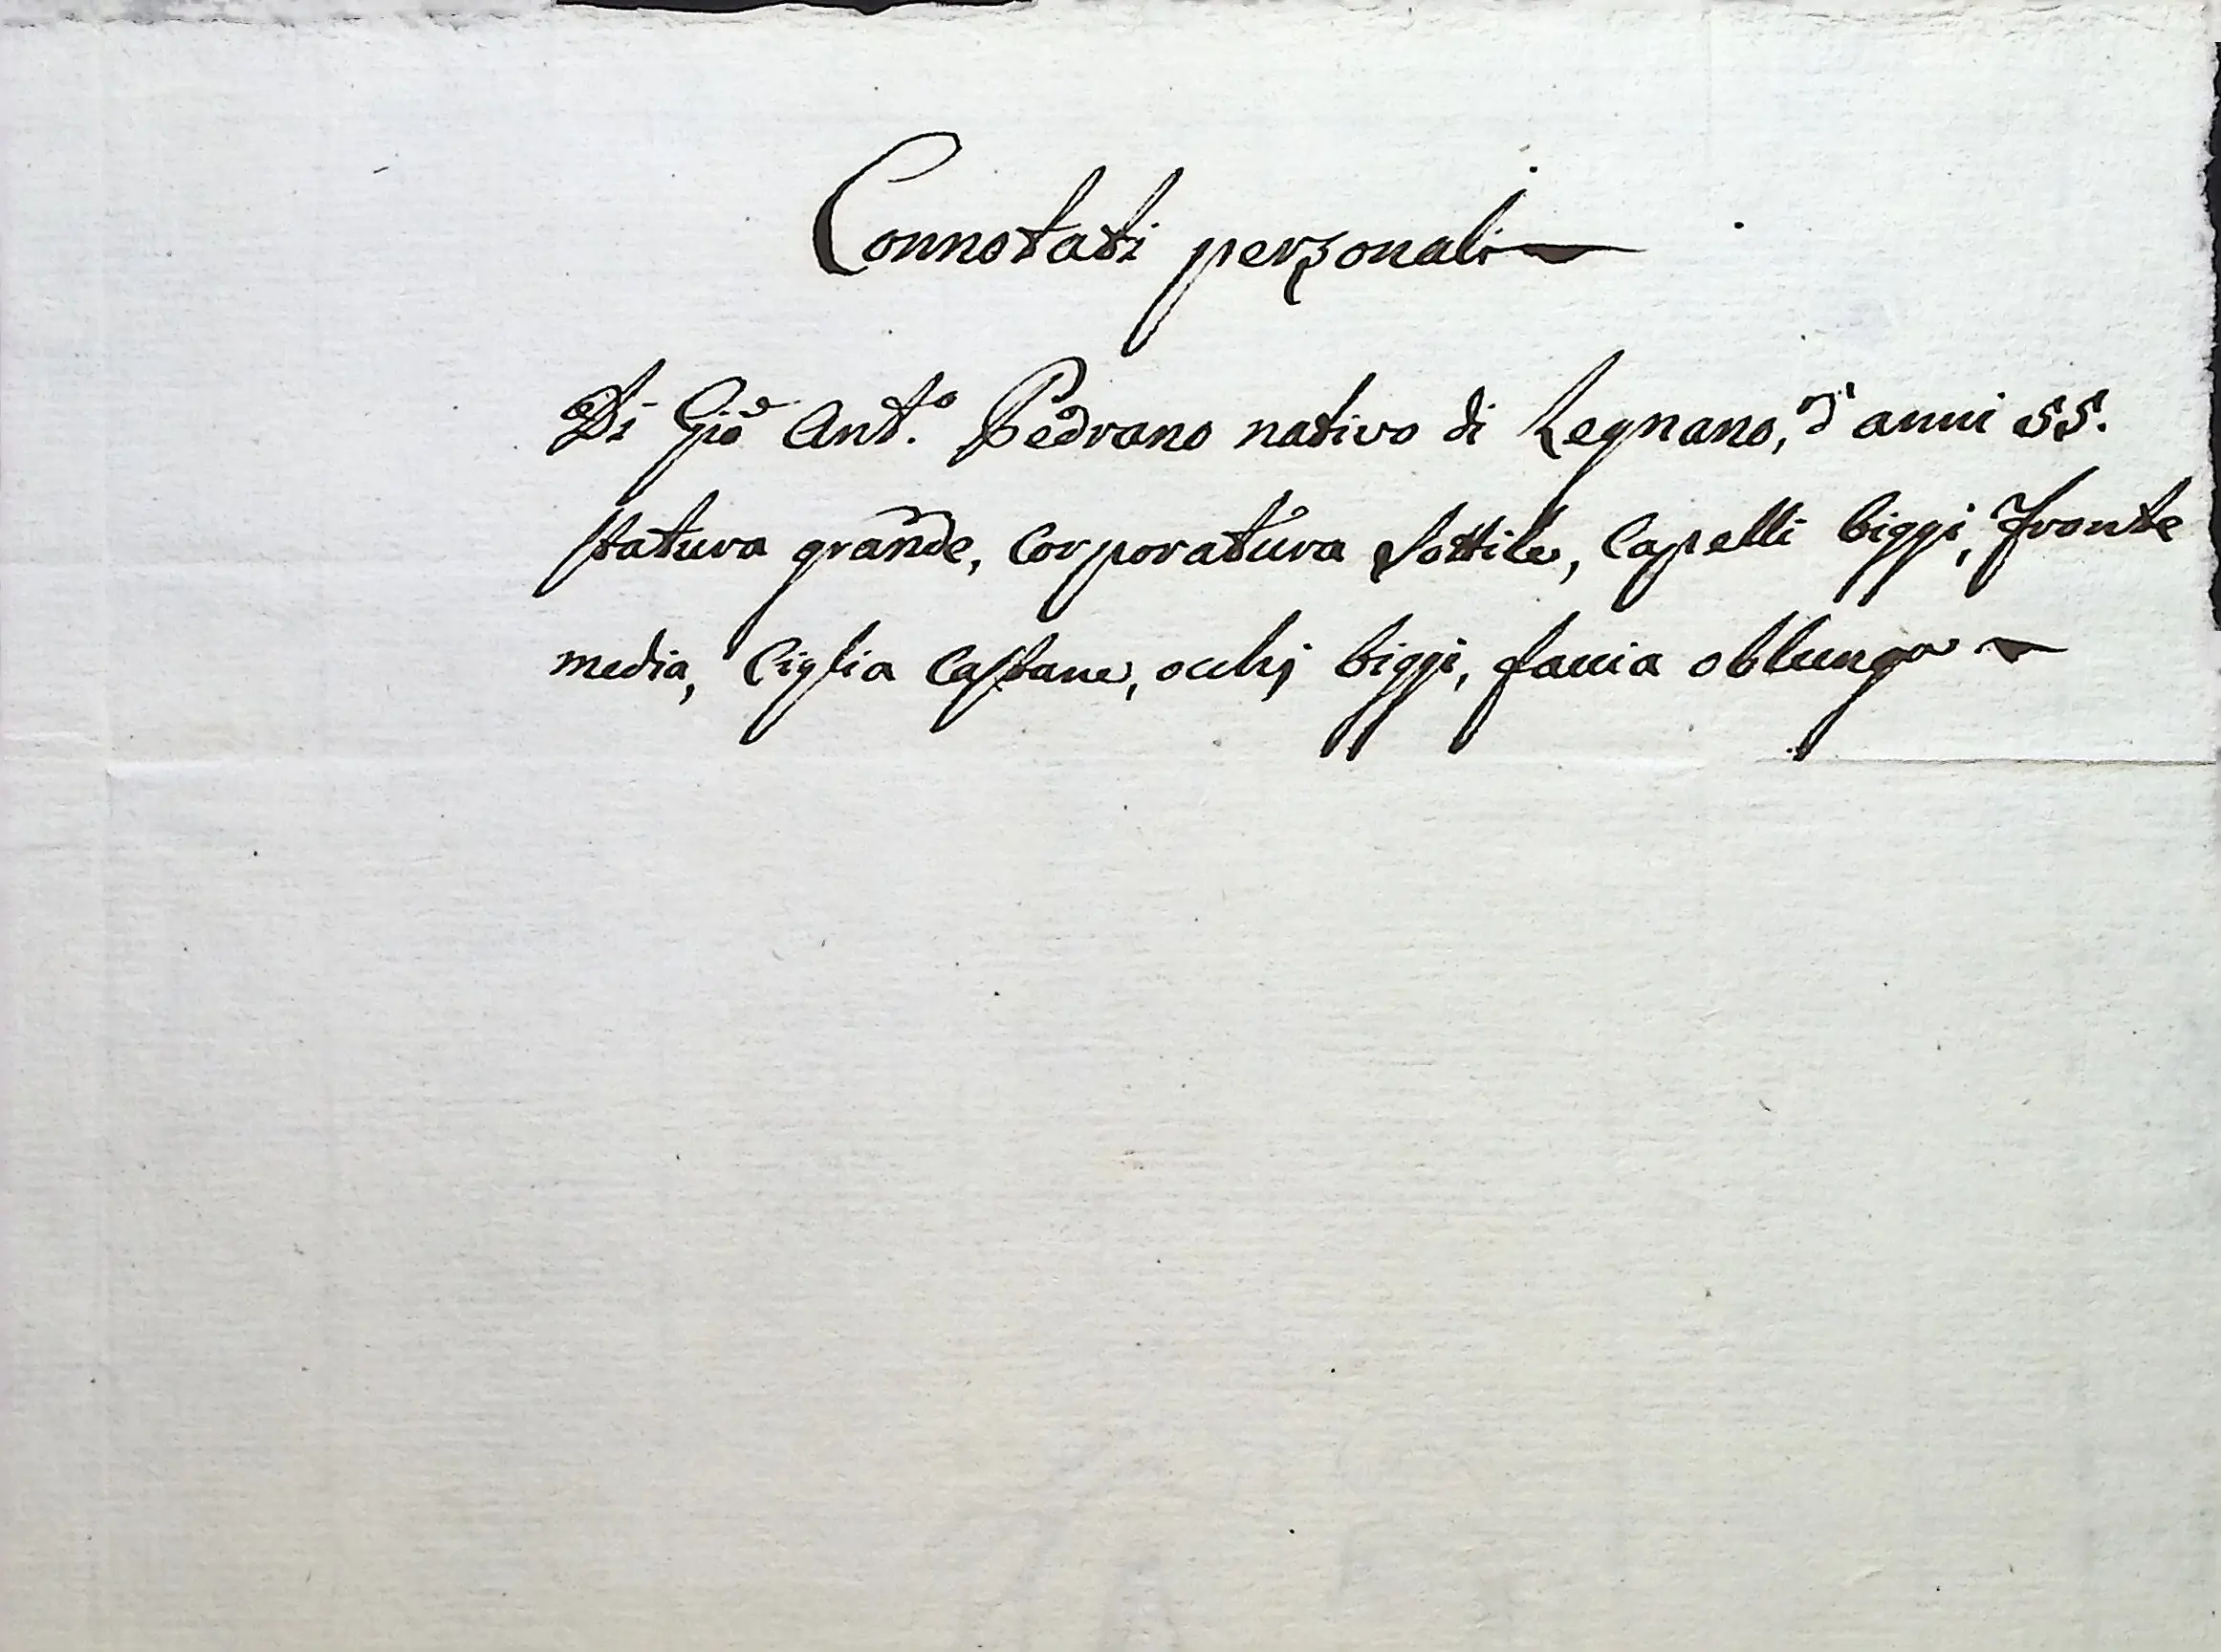 Connotati personali
Di Gio Ant.o Pedrano nativo di Legnano, d'anni 55.
statura grande, Corporatura sottile, Capelli biggi, fronte
media, Ciglia Castane, occhj biggi, faccia oblunga